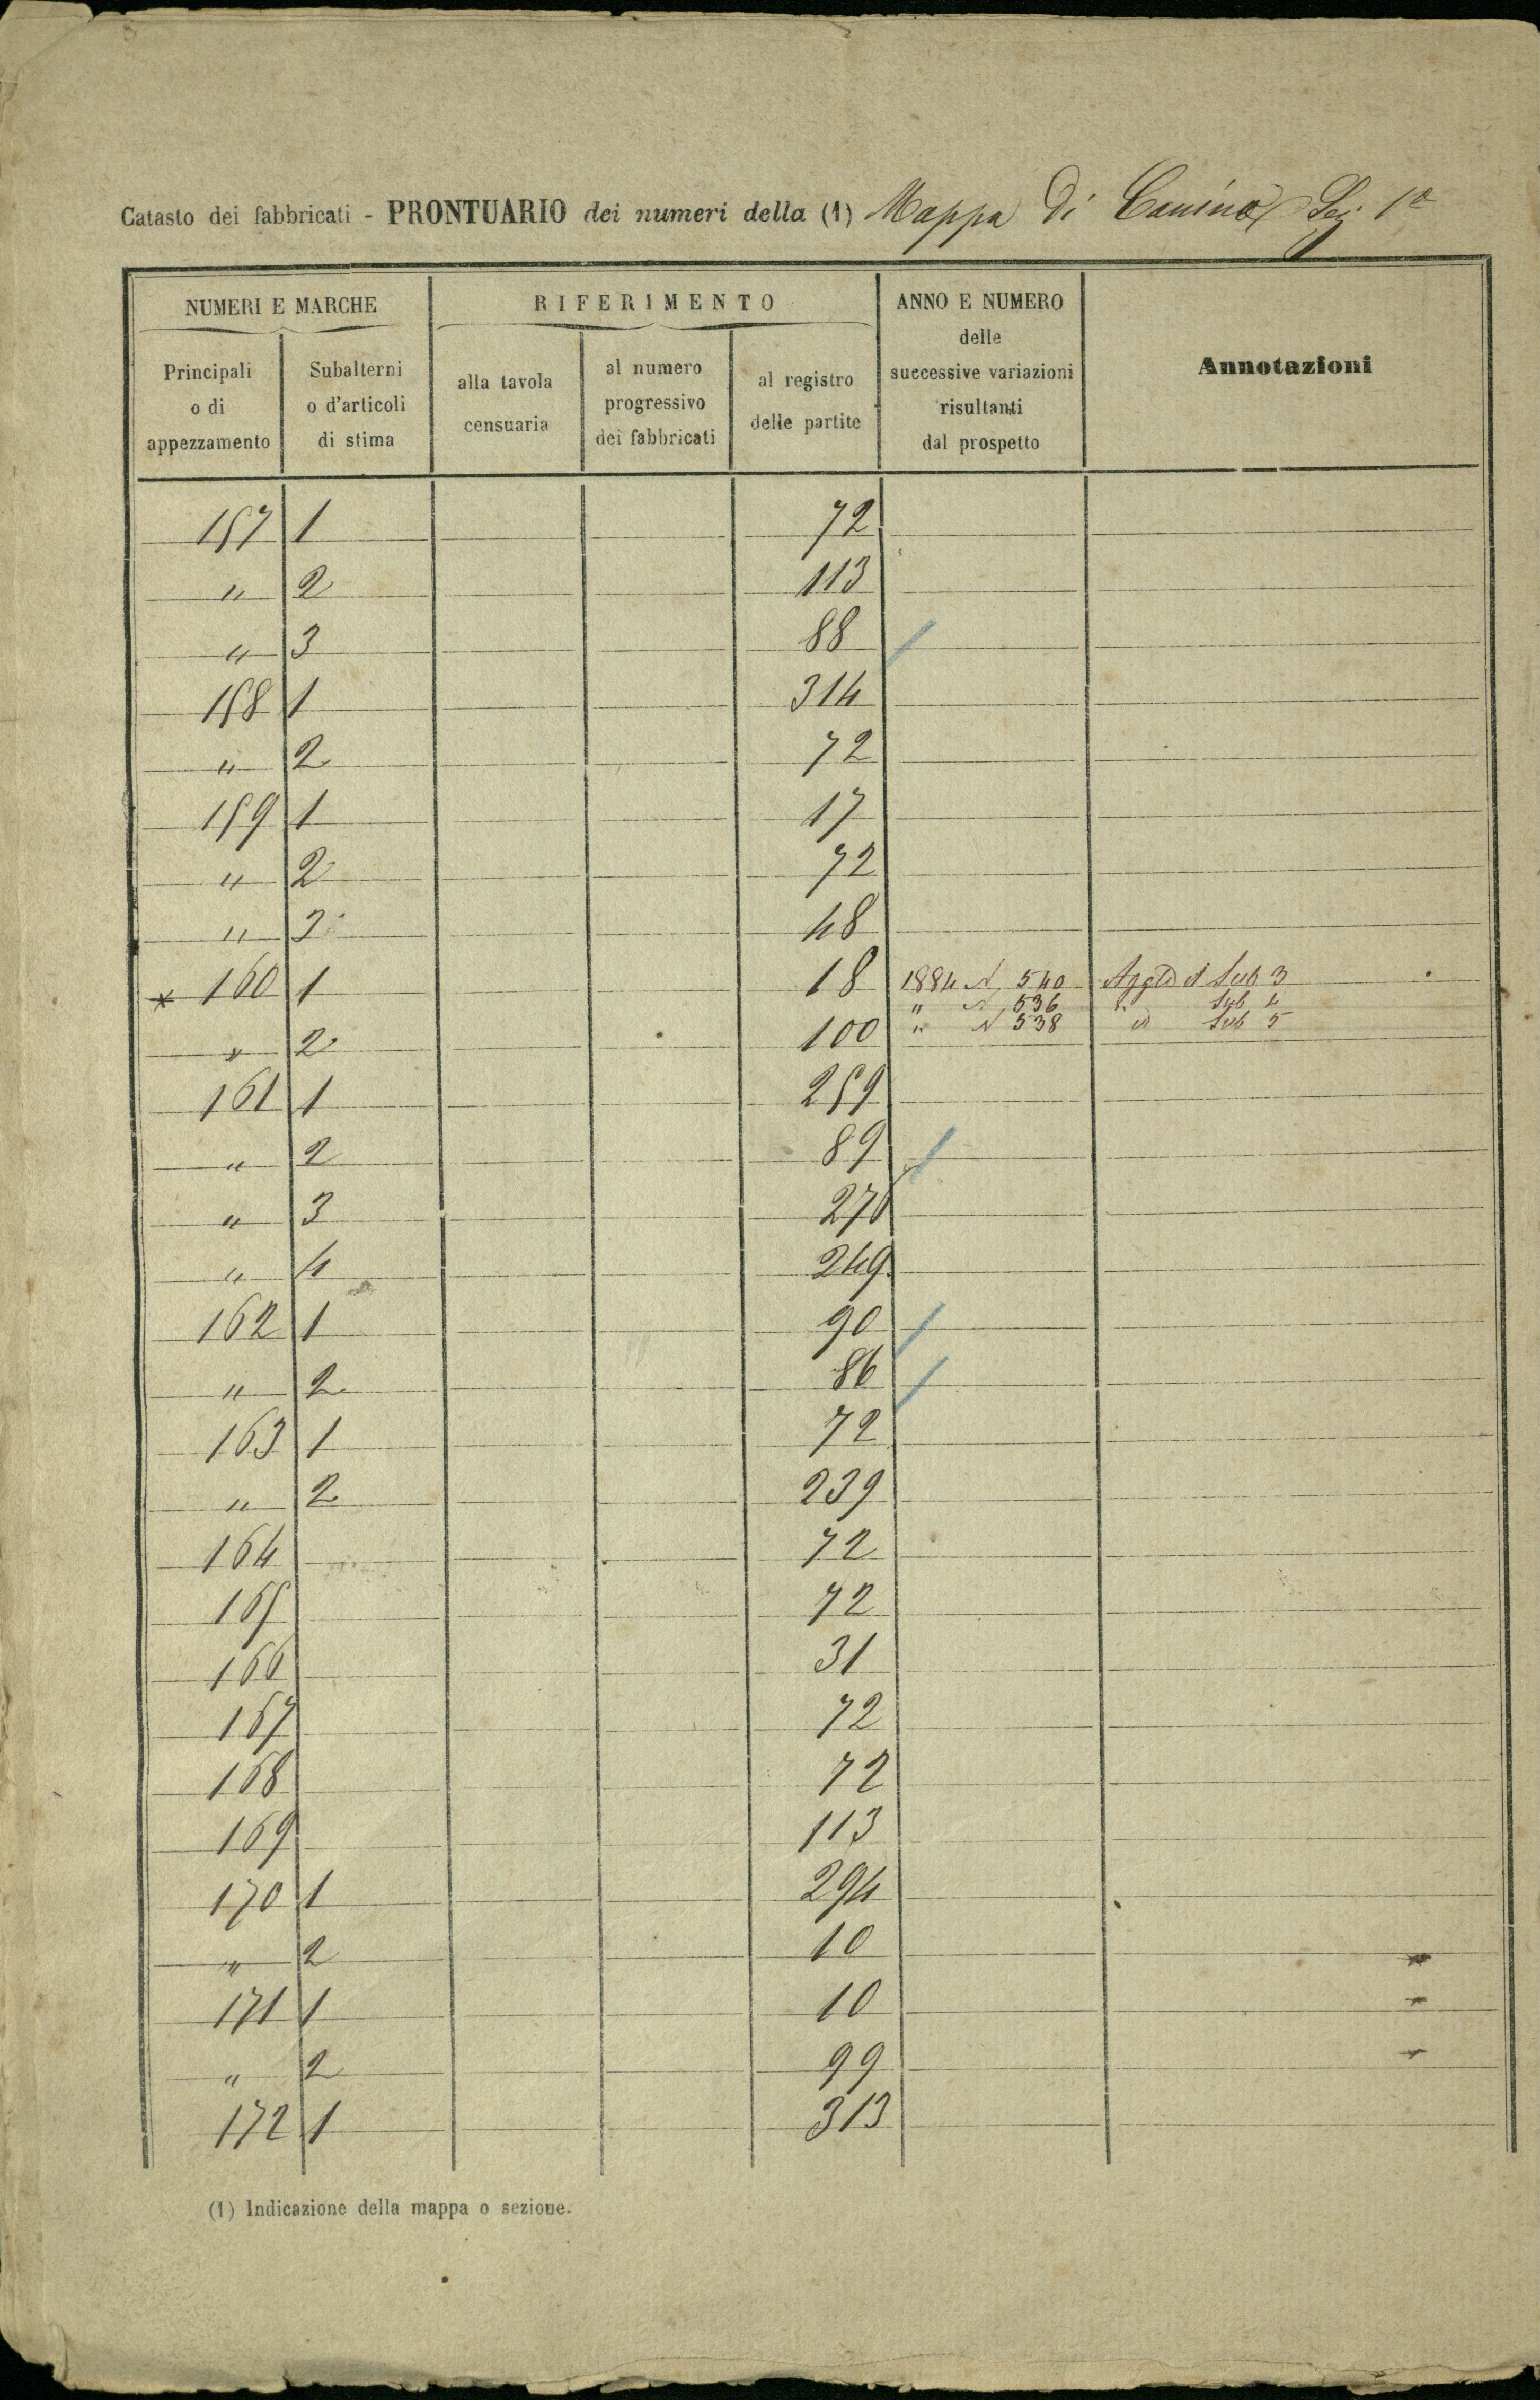 Catasto dei fabbricati - PRONTUARIO dei numeri della (1) Mappa di Canino Sez 1ª
NUMERI E MARCHE
RIFERIMENTO
ANNO E NUMERO
delle
successive variazioni
risultanti
dal prospetto
Annotazioni
Principali
o di
appezzamento
Subalterni
o d'articoli
di stima
alla tavola
censuaria
al numero
progressivo
dei fabbricati
al registro
delle partite
157 1 72
" 2 113
" 3 88
158 1 314
" 2 72
159 1 17
" 2 72
" 3 48
160 1 18 1884 N 540 Sub 3
" N 536 " Sub 4
" 2 100 " N 538 id Sub 5
161 1 259
" 2 89
" 3 270
" 4 249
162 1 90
" 2 86
163 1 72
" 2 239
164 72
165 72
166 31
167 72
168 72
169 113
170 1 294
" 2 10
171 1 10
" 2 99
172 1 313
(1) Indicazione della mappa o sezione.